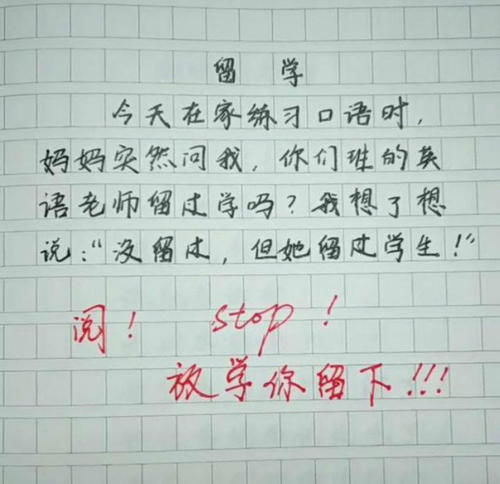 留学
今天在家练习口语时,
妈妈突然问我,你们班的英
语老师留过学吗?我想了想
说:“没留过,但她留过学生!”
阅! stop!
放学你留下!!!